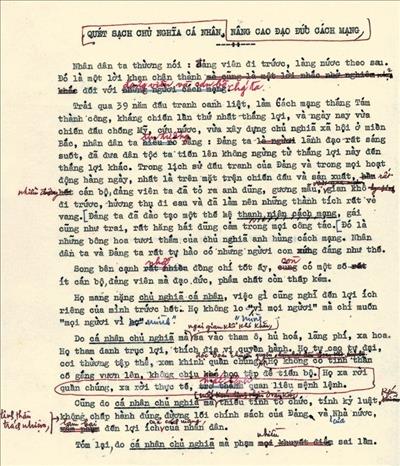 QUÉT SẠCH CHỦ NGHĨA CÁ NHÂN, NÂNG CAO ĐẠO ĐỨC CÁCH MẠNG
Nhân dân ta thường nói : đảng viên đi trước, làng nước theo sau.
Đó là một lời khen chân thành
đảng viên và cán bộ
chúng ta.
đối với những người cách mạng
Trải qua 39 năm đấu tranh oanh liệt, làm Cách mạng tháng Tám
thành công, kháng chiến lần thứ nhất thắng lợi, và ngày nay vừa
chiến đấu chống Mỹ, cứu nước, vừa xây dựng chủ nghĩa xã hội ở miền
Bắc, nhân dân ta hiểu rõ rằng : Đảng ta là người lãnh đạo rất sáng
suốt, đã đưa dân tộc ta tiến lên không ngừng từ thắng lợi này đến
thắng lợi khác. Trong lịch sử đấu tranh của Đảng và trong mọi hoạt
động hàng ngày, nhất là trên mặt trận chiến đấu và sản xuất,
cán bộ, đảng viên ta đã tỏ ra anh dũng, gương mẫu, gian khổ
đi trước, hưởng thụ đi sau và đã làm nên những thành tích rất vẻ
vang. Đảng ta đã đào tạo một thế hệ thanh niên cách mạng, gái
cũng như trai, rất hăng hái dũng cảm trong mọi công tác. Đó là
những bông hoa tươi thắm của chủ nghĩa anh hùng cách mạng. Nhân
dân ta và Đảng ta rất tự hào có những người con xứng đáng như thế.
Song bên cạnh
đồng chí tốt ấy,
còn
có một số
ít cán bộ, đảng viên mà đạo đức, phẩm chất còn thấp kém.
Họ mang nặng chủ nghĩa cá nhân, việc gì cũng nghĩ đến lợi ích
riêng của mình trước hết. Họ không lo "vì mọi người" mà chỉ muốn
"mọi người vì
mình
ngại gian khổ khó khăn,
Do cá nhân chủ nghĩa mà
vào tham ô, hủ hoá, lãng phí, xa hoa.
Họ tham danh trục lợi, thích địa vị quyền hành. Họ tự cao tự đại,
coi thường tập thể, xem khinh quần chúng,
Họ không có tinh thần
cố gắng vươn lên, không chịu
học tập để tiến bộ. Họ xa rời
quần chúng, xa rời thực tế,
quan liêu mệnh lệnh.
Cũng do cá nhân chủ nghĩa mà
thiếu tinh thần trách nhiệm,
thiếu tính tổ chức, tính kỷ luật,
không chấp hành đúng đường lối chính sách của Đảng và Nhà nước,
đến lợi ích
của nhân dân.
Tóm lại, do cá nhân chủ nghĩa mà phạm
nhiều
sai lầm.